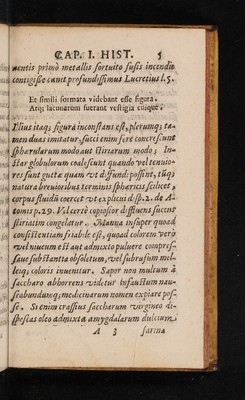 CAP. I. HIST. 5
mentis primò metallis fortuito fusis incendio
contigisse canit profundissimus Lucretius l. 5.
Et simili formata videbant esse figura.
Atq; lacunarum fuerant vestigia cuique.
Illius itaq; figura inconstans est, plerumq; ta-
men duas imitatur, succi enim ferè concrescunt
sphærularum modo, aut stiriarum modo; In-
star globulorum coalescunt quando vel tenuio-
res sunt guttæ quam vt diffundi possint, tũq;
natura brevioribus terminis sphæricis scilicet,
corpus fluidũ coercet vt explicui disp. 2. de A-
tomis p. 29. Vel certè copiosior diffluens succus
stiriatim congelatur. Manna insuper quoad
consistentiam friabile est, quoad colorem verò
vel niveum est aut admixto pulvere compres-
save substantia obsoletum, vel subrufum mel-
leiq; coloris invenitur. Sapor non multum à
saccharo abhorrens videtur infaustum nau-
seabundumq; medicinarum nomen expiare pos-
se. Si enim crassius saccharum virgineo di-
spositas oleo admixta amygdalarum dulcium,
A 3 farina